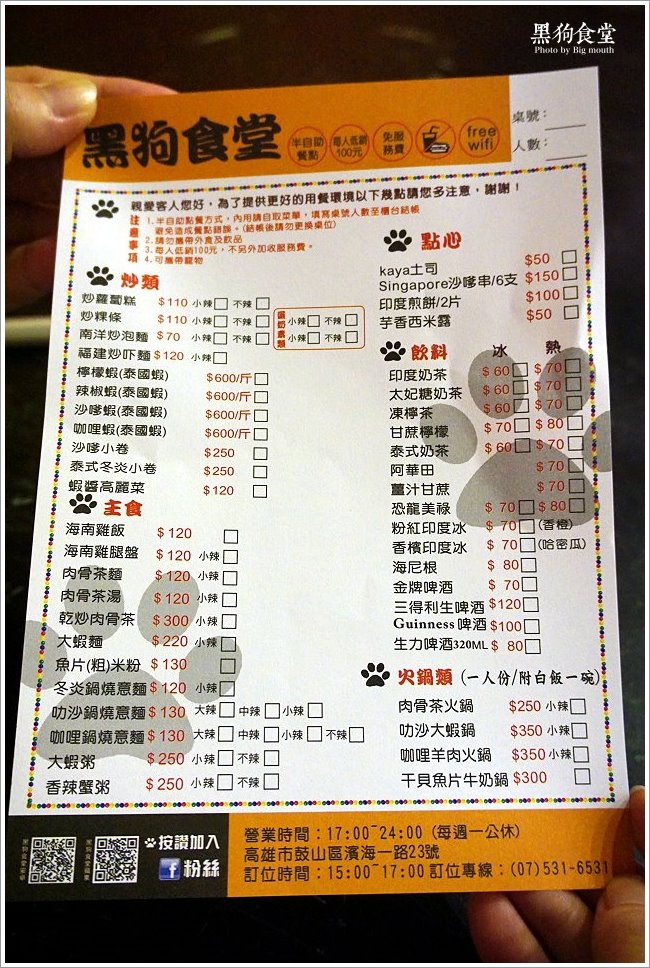 黑狗食堂
Photo by Big mouth
黑狗食堂
半自助餐點
每人低銷100元
免服務費
free wifi
桌號:
人數:
親愛客人您好，為了提供更好的用餐環境以下幾點請您多注意，謝謝！
注意事項
1.半自助點餐方式，內用請自取菜單，填寫桌號人數至櫃台結帳
避免造成餐點錯誤。(結帳後請勿更換桌位)
2.請勿攜帶外食及飲品
3.每人低銷100元，不另外加收服務費。
4.可攜帶寵物
炒類
炒蘿蔔糕 $110 小辣□ 不辣□
炒粿條 $110 小辣□ 不辣□
南洋炒泡麵 $70 小辣□ 不辣□
福建炒吓麵 $120 小辣□
蛋奶素類 小辣□ 不辣□
小辣□ 不辣□
檸檬蝦(泰國蝦) $600/斤□
辣椒蝦(泰國蝦) $600/斤□
沙嗲蝦(泰國蝦) $600/斤□
咖哩蝦(泰國蝦) $600/斤□
沙嗲小卷 $250 □
泰式冬炎小卷 $250 □
蝦醬高麗菜 $120 □
主食
海南雞飯 $120 □
海南雞腿盤 $120 小辣□
肉骨茶麵 $120 小辣□
肉骨茶湯 $120 小辣□
乾炒肉骨茶 $300 小辣□
大蝦麵 $220 小辣□
魚片(粗)米粉 $130 □
冬炎鍋燒意麵 $120 小辣□
叻沙鍋燒意麵 $130 大辣□ 中辣□ 小辣□
咖哩鍋燒意麵 $130 大辣□ 中辣□ 小辣□ 不辣□
大蝦粥 $250 小辣□ 不辣□
香辣蟹粥 $250 小辣□ 不辣□
點心
kaya土司 $50 □
Singapore沙嗲串/6支 $150 □
印度煎餅/2片 $100 □
芋香西米露 $50 □
飲料 冰 熱
印度奶茶 $60□ $70□
太妃糖奶茶 $60□ $70□
凍檸茶 $60□ $70□
甘蔗檸檬 $70□ $80□
泰式奶茶 $60□ $70□
阿華田 $70□
薑汁甘蔗 $70□
恐龍美祿 $70□ $80□
粉紅印度冰 $70□(香橙)
香檳印度冰 $70□(哈密瓜)
海尼根 $80□
金牌啤酒 $70□
三得利生啤酒 $120□
Guinness啤酒 $100□
生力啤酒320ML $80□
火鍋類(一人份/附白飯一碗)
肉骨茶火鍋 $250 小辣□
叻沙大蝦鍋 $350 小辣□
咖哩羊肉火鍋 $350 小辣□
干貝魚片牛奶鍋 $300 □
按讚加入
粉絲
營業時間：17:00~24:00 (每週一公休)
高雄市鼓山區濱海一路23號
訂位時間：15:00~17:00 訂位專線：(07)531-6531